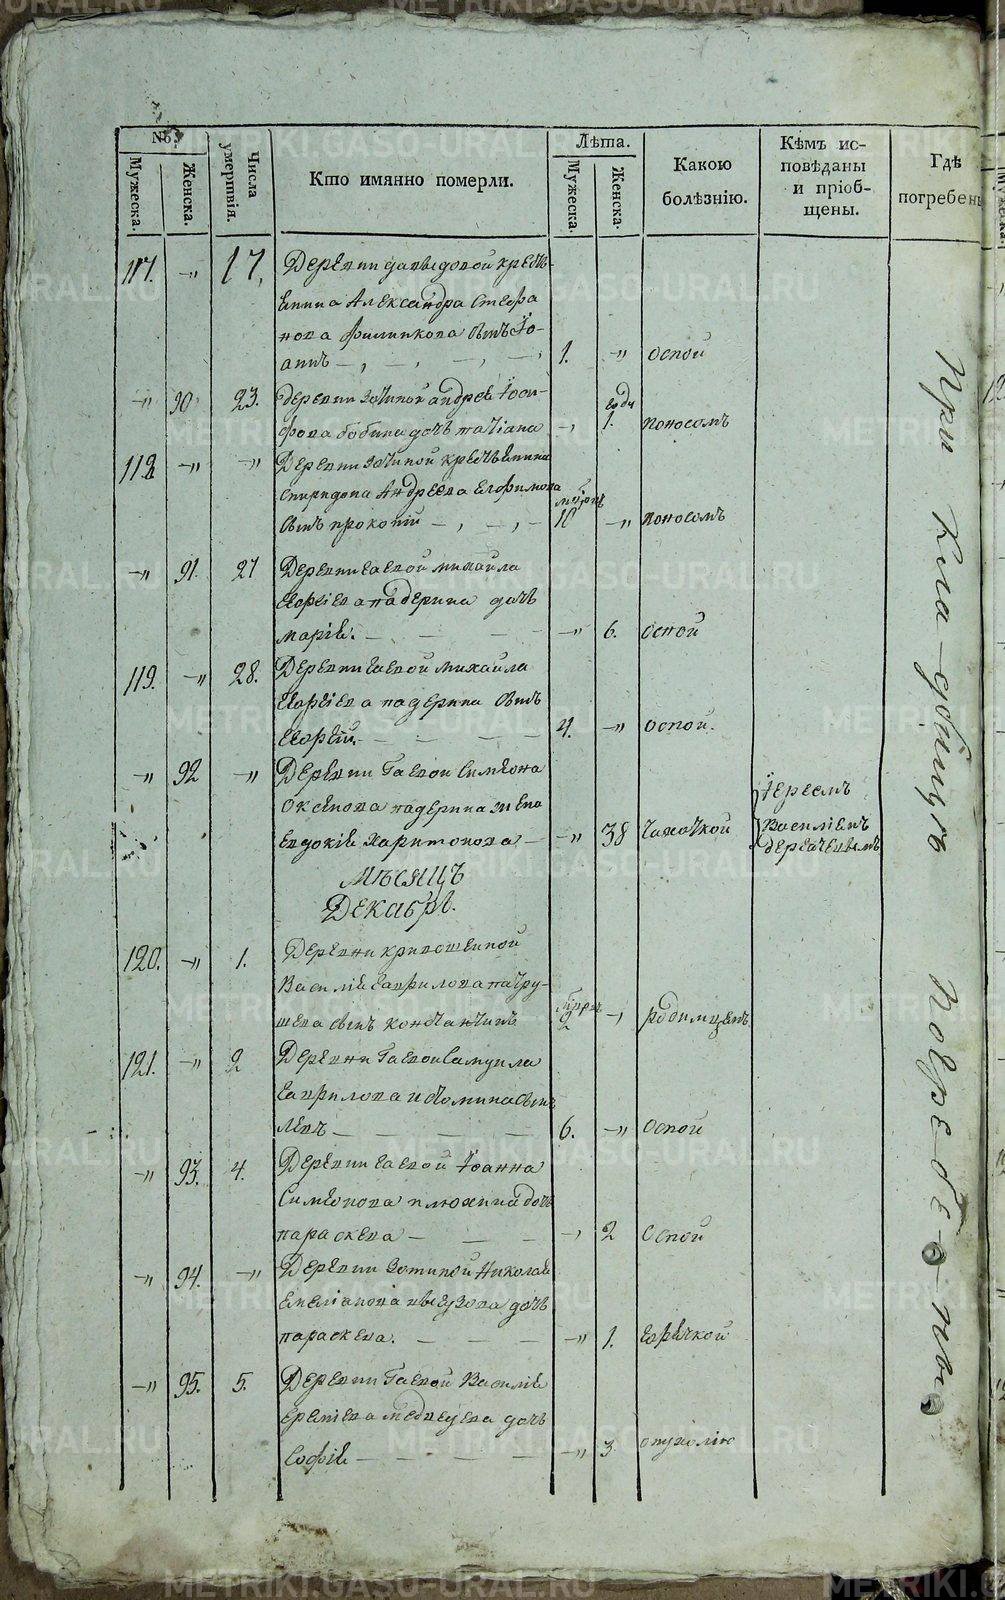 №
Мужеска.
Женска.
Числа умертвія.
Кто имянно померли.
Лѣта.
Мужеска.
Женска.
Какою болѣзнію.
Кѣмъ исповѣданы и пріобщены.
Гдѣ погребены
117. -„ 17,
Деревни давыдовой кресть-
янина Александра Стефа
нова филипкова сынъ Іо-
аннъ 1. -„ оспой
-„ 90 23. деревни Зотиной андрея Іоси-
фова бобина дочь татіана -, годъ 1. поносомъ
118 -„ -„ Деревни Зотиной крестьянина
спиридона Андреева Ефимова
сынъ прокопій 10 -„ поносомъ
-„ 91. 27 Деревни Гаевой михайла
Георгіева падерина дочь
марія. -„ 6. оспой
119. -„ 28. Деревни Гаевой михайла
Георгіева падерина сынъ
Георгій. 4. -„ оспой.
-„ 92 -„ Деревни Гаевой Симеона
падерина жена
Евдокія Харитонова -„ 38 чахоткой
Іереемъ
Василіемъ
Дерябинымъ
мѣсяцъ
Декабрь.
120. -„ 1. Деревни кривошеиной
Василія Гаврилова патру-
шева сынъ константинъ 2 -, родимцемъ
121. -„ 2 Деревни Гаевой Самуила
Гаврилова сынъ
левъ 6. -„ оспой
-„ 93. 4. Деревни Гаевой Іоанна
Симеонова плюхина дочь
параскева -, 2 оспой
-„ 94. -„ Деревни Зотиной Николая
Емеліанова дочь
параскева. -„ 1. горячкой
-„ 95. 5. Деревни Гаевой Василія
еремеева медведева дочь
Софія -„ 3. опухолію
При кла-дбищѣ погребе-ны
METRIKI.GASO-URAL.RU